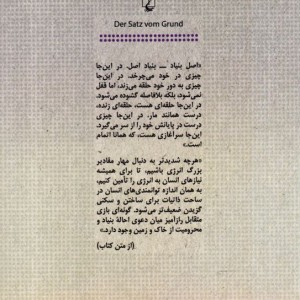 Der Satz vom Grund
«اصل بنیاد ــ بنیاد اصل. در این‌جا
چیزی در خود می‌چرخد. در این‌جا
چیزی به دور خود حلقه می‌زند، اما قفل
نمی‌شود، بلکه بلافاصله گشوده می‌شود.
در این‌جا حلقه‌ای هست، حلقه‌ای زنده،
درست همانند مار. در این‌جا چیزی
درست در پایانش خود را از سر می‌گیرد.
این‌جا سرآغازی هست، که همانا اتمام
است.»
«هرچه شدیدتر به دنبال مهار مقادیر
بزرگ انرژی باشیم، تا برای همیشه
نیازهای انسان به انرژی را تأمین کنیم،
به همان اندازه توانمندی‌های انسان در
ساحت ذاتیات برای ساختن و سکنی
گزیدن ضعیف‌تر می‌شود. گونه‌ای بازی
متقابل رازآمیز میان دعوی احالهٔ بنیاد و
محرومیت از خاک و زمین وجود دارد.»
(از متن کتاب)